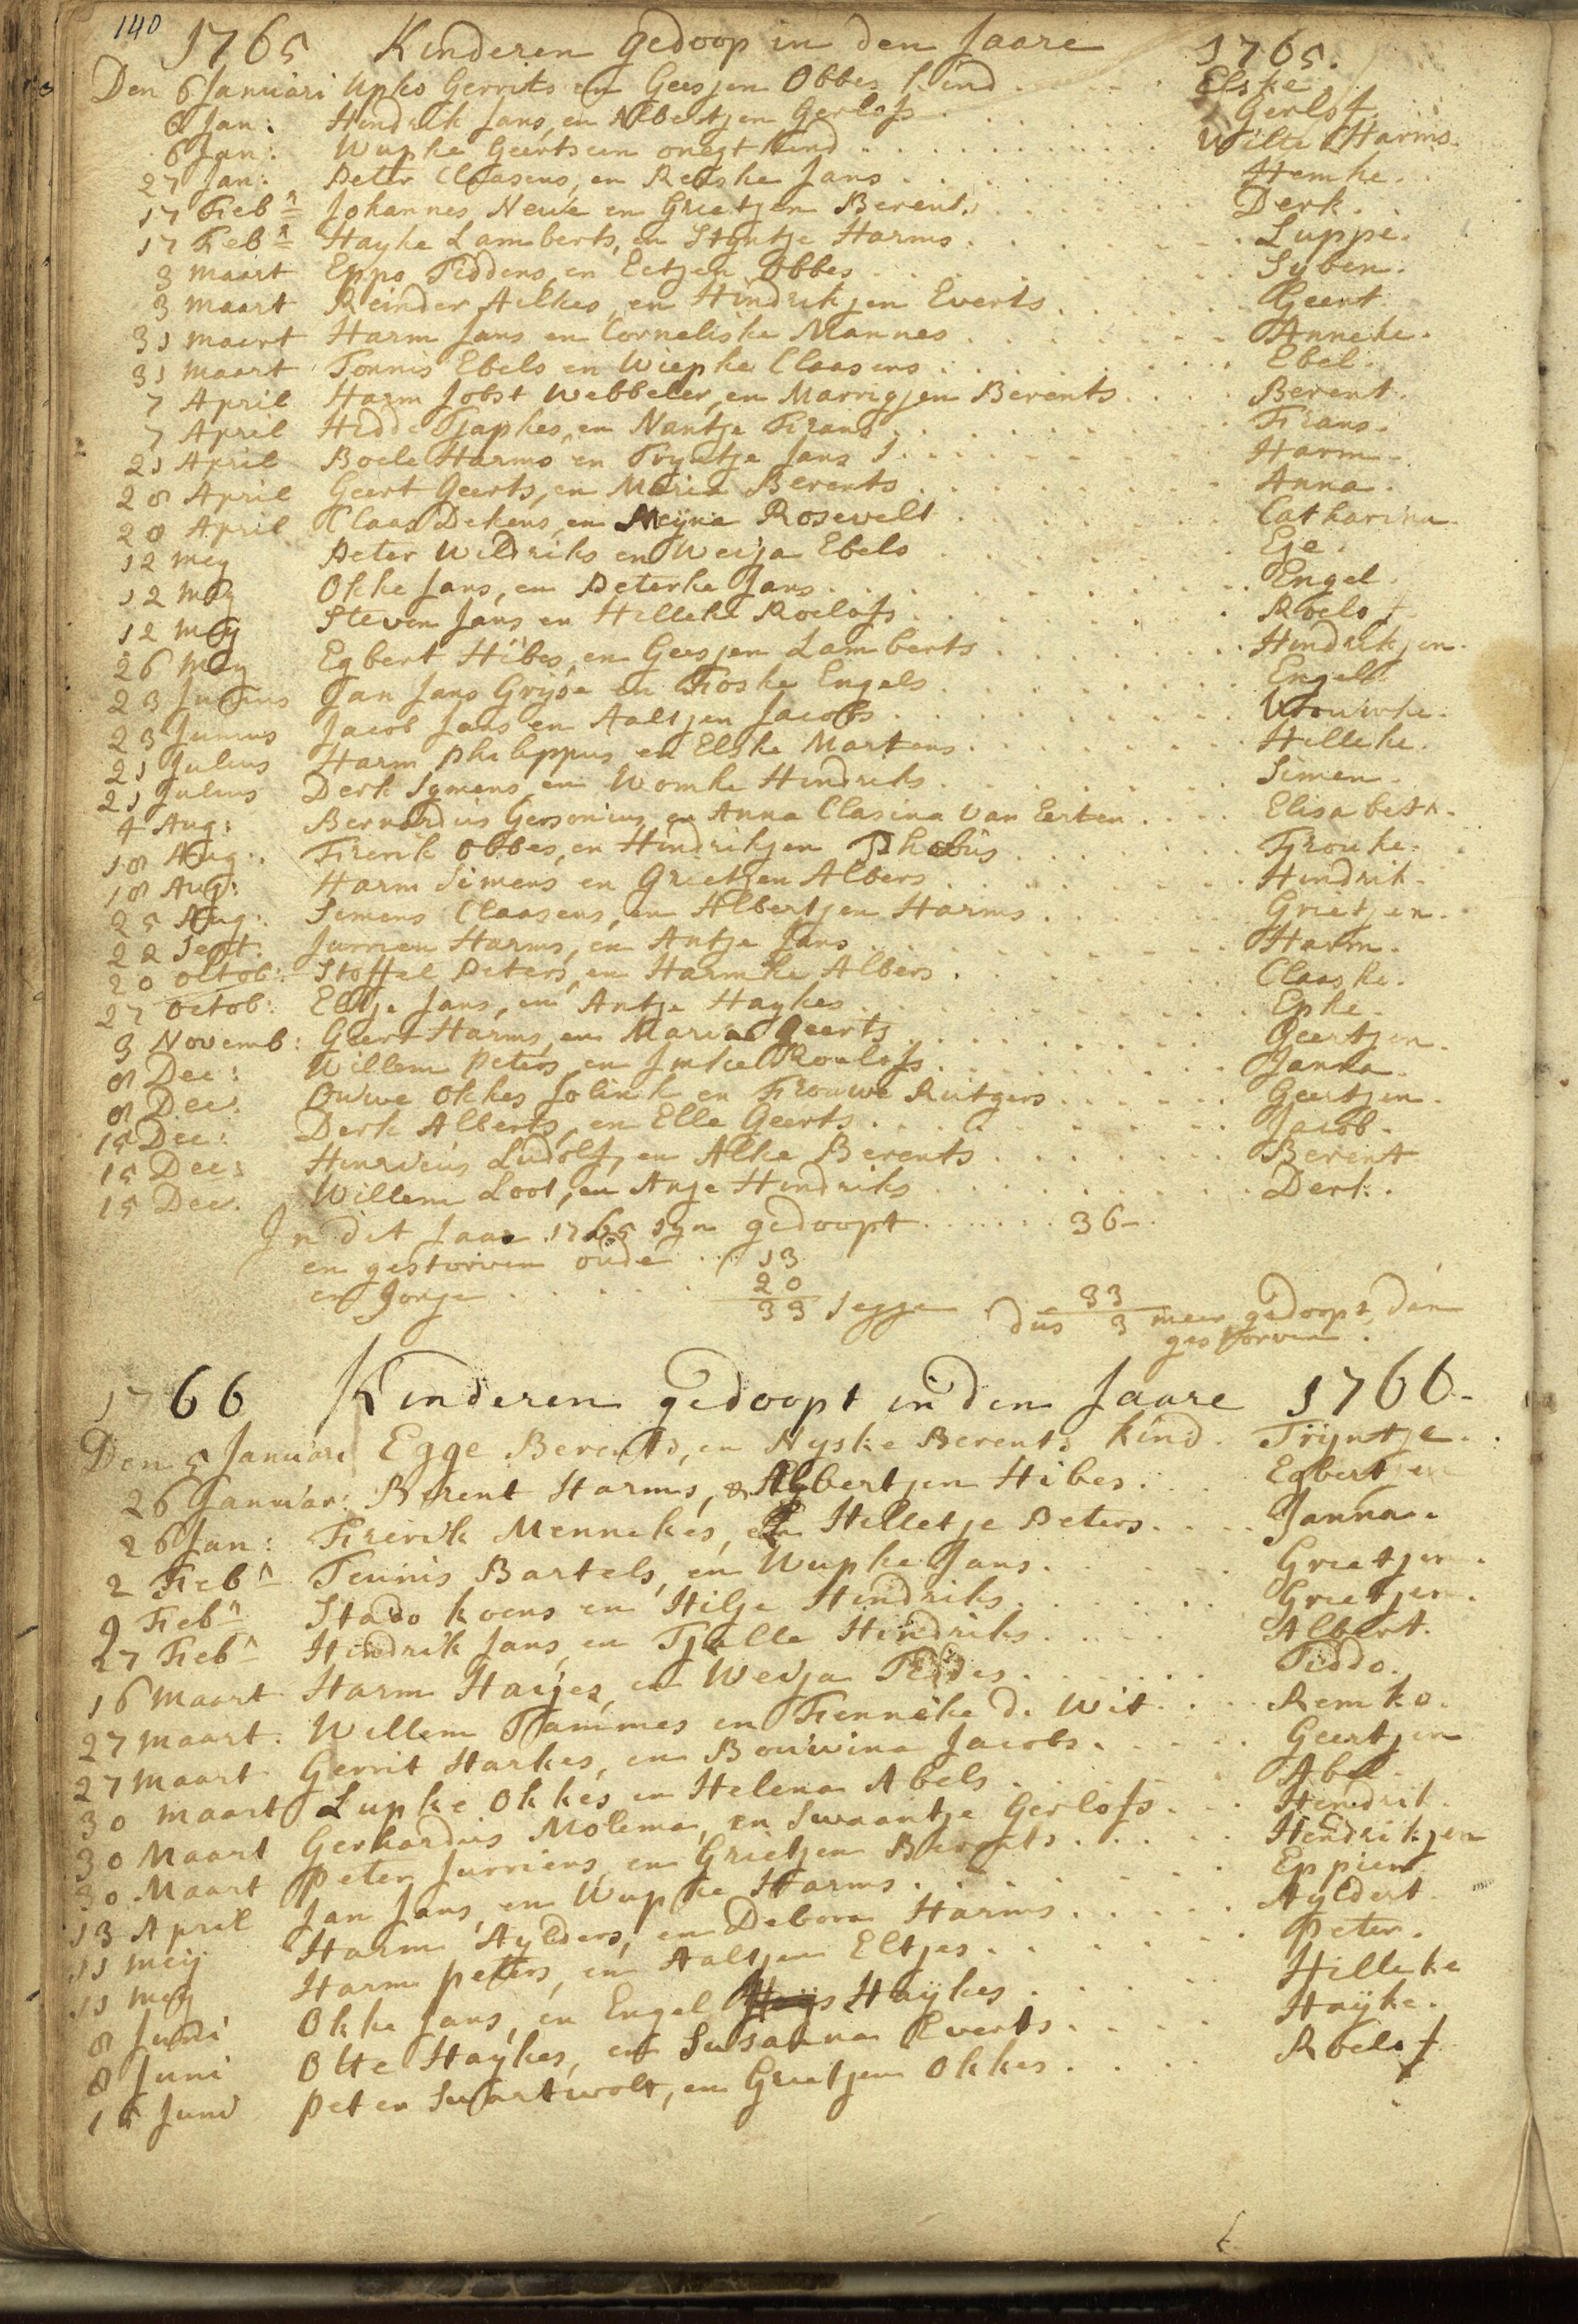 140
1765 Kinderen gedoop in den Jaare 1765.
Den 6 Januari Upko Gerrits en Geesjen Obbes kind Elske
6 Jan: Hindrik Jans, en Albertjen Gerlofs Gerlof
6 Jan: Wupke Geerts een onegt kind Wilte Harms.
27 Jan: Peter Claasens, en Renske Jans Hemke.
17 Feb Johannes Neuve en Grietjen Berents Derk.
17 Feb Hayke Lamberts, en Styntje Harms Luppe.
3 maart Eppo Fiddens, en Eetjen Obbes Syben.
3 maart Reinder Ailkes, en Hindrikjen Everts Geert
31 maart Harm Jans en Corneliske Mannes Anneke.
31 maart Tonnis Ebels en Wiepke Claasens Ebel.
7 April Harm Jobst Webbeler, en Marrigjen Berents Berent.
7 April Hidde Tjapkes, en Nantje Frans Frans.
21 April Boele Harms en Tryntje Jans Harm
28 April Geert Geerts, en Maria Berents Anna.
28 April Claas Dekens, en Meyna Rosevelt Catharina.
12 mey Peter Wildriks en Weija Ebels Eje.
12 mey Okke Jans, en Peterke Jans Engel.
12 mey Steven Jans en Hilleke Roelofs Roelof.
26 mey Egbert Hibes, en Geesjen Lamberts Hindrikjen.
23 Junius Jan Jans Gryse en Foske Engels Engel.
23 Junius Jacob Jans en Aaltjen Jacobs Vrouwke.
21 Julius Harm Philippus en Elske Martens Hilleke.
21 Julius Derk Symens, en Womke Hindriks Simen.
4 Aug: Bernardus Gersonius, en Anna Clasina Van Eerten Elisabeth.
18 Aug: Frerik Obbes, en Hindrikjen Phebus Frouke.
18 Aug: Harm Simens en Grietjen Albers Hindrik.
25 Aug: Simens Claasens, en Albertjen Harms Grietjen.
22 Sept. Jurrien Harms, en Antje Jans Harm.
20 octob: Stoffel Peters, en Harmke Albers Claaske.
27 octob: Eltje Jans, en Antje Haykes Epke.
3 Novemb: Geert Harms, en Maria Geerts Geertjen.
8 Dec: Willem Peters, en Imke Roelofs Janna.
8 Dec: Ouwe Okkes Jolink en Frouwe Rutgers Geertjen.
15 Dec: Derk Alberts, en Elle Geerts Jacob.
15 Dec: Hinricus Ludolf, en Alke Berents Berent
15 Dec. Willem Loot, en Anje Hindriks Derk.
In dit Jaar 1765 syn gedoopt 36.
en gestorven oude 13
en Jonge 20
33 segge 33
dus 3 meer gedoopt dan
gestorven.
1766 Kinderen gedoopt in den Jaare 1766.
Den 5 Januari Egge Berents, en Nyske Berents kind. Trijntje.
26 Januar: Berent Harms, & Albertjen Hibes. Egbertjen
26 Jan: Frerik Mennekes, en Hilletje Peters. Janna.
2 Feb Teunis Bartels, en Wupke Jans. Grietjen.
9 Feb Stado koens en Hilje Hindriks. Grietjen.
27 Feb Hindrik Jans, en Tjalle Hindriks Albert.
16 maart Harm Haijes, en Weija Fiddes. Fiddo.
27 maart. Willem Tammes en Fenneke de Wit. Remko.
27 maart Gerrit Harkes, en Bouwina Jacobs. Geertjen
30 maart Lupke Okkes en Helena Abels Abel.
30 Maart Gerhardus Molema, en Swaantje Gerlofs. Hendrik.
30 Maart Peter Jurriens, en Grietjen Berents. Hendrikjen
13 April Jan Jans, en Wupke Harms. Eppien.
11 meij Harm Aylders, en Debora Harms. Ayldert.
11 mey Harm peters, en Aaltjen Eltjes. Peter.
8 Juni Okke Jans, en Engel Haykes Hilleke
8 Juni Olte Haykes, en Susanna Everts. Hayke.
15 Juni Peter Swartwolt, en Grietjen Okkes. Roelof